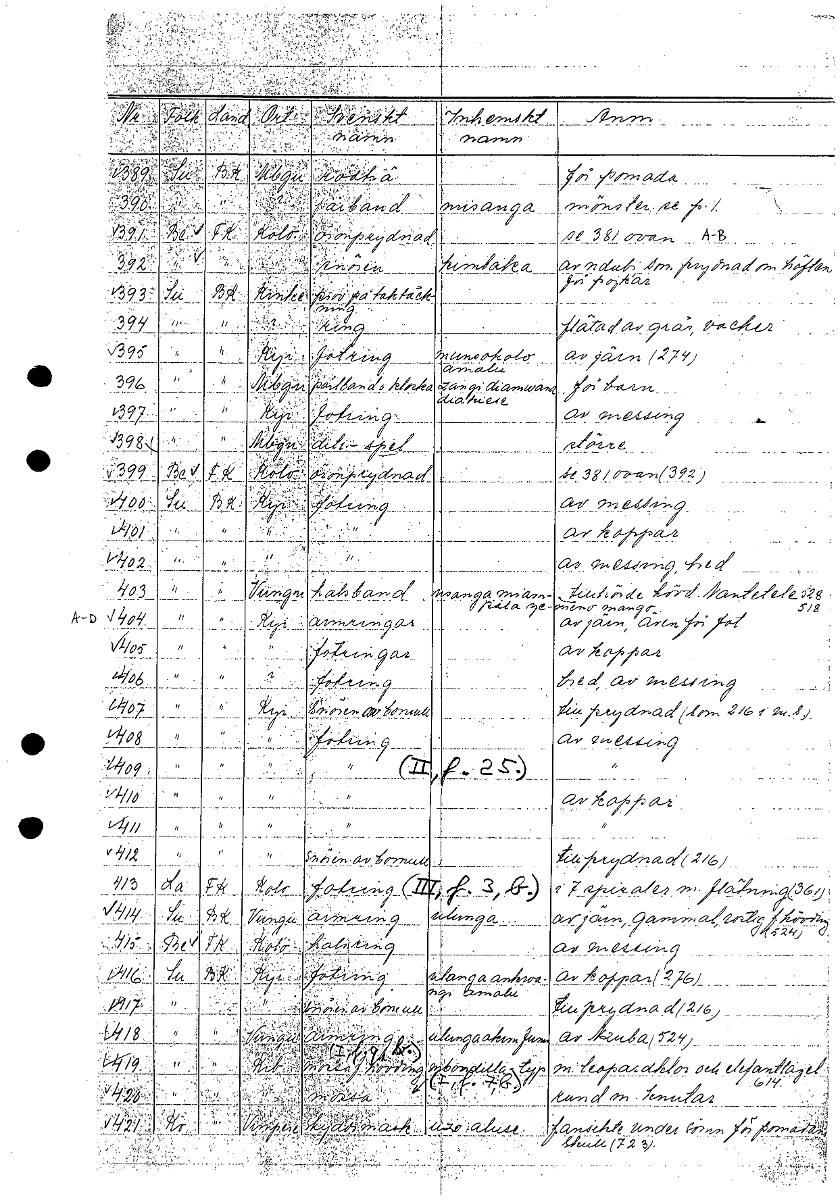 Nr Folk Land Ort Svenskt namn Inhemskt namn Anm
√389 Su BK Mbgu rödträ för pomada
390 " " ? pärband misanga mönster se p. 1.
√391 Be √ FK Kolo öronprydnad se 381 ovan A-B
392 " √ " snören kimbaka av ndubi som prydnad om höften
för pojkar
√393 Su BK Kinke prov på taktäck-
ning
394 " " ? ring flätad av gräs, vacker
√395 " " Kyi fotring av järn (274)
amalu
396 " " Mbgu pärlband o klocka för barn
√397 " " Kyi fotring av messing
√398 " " Mbgu spel större
√399 Be √ FK Kolo öronprydnad se 381 ovan (392)
√400 Su BK Kyi fotring av messing
√401 " " " " av koppar
√402 " " " " av messing, bred
403 " " Vungu halsband tillhörde hövd. Nantetele 528
518
A-D √404 " " Kyi armringar av järn, även för fot
√405 " " " fotringar av koppar
√406 " " ? fotring bred, av messing
√407 " " Kyi snören av bomull till prydnad (som 216 i m.s).
√408 " " " fotring av messing
√409 " " " " (II, f. 25.) "
√410 " " " " av koppar
√411 " " " " "
√412 " " " snören av bomull till prydnad (216)
413 La FK Kolo fotring (III, f. 3, b.) i 7 spiraler m. flätning (361)
√414 Su BK Vungu armring ulunga av järn, gammal, rostig f hövding
(524)
415 Be √ FK Kolo halsring av messing
√416 Su BK Kyi fotring av koppar (276)
amalu
√417 " " " snören av bomull till prydnad (216)
√418 " " Vungu armring av (524)
√419 " " Kib mössa f hövding typ m. leopardklor och elefanttagel
(I, f. 7, b.) 614
√420 " " " mössa rund m. knutar
√421 Ko " Vimpere hydosmask fansikte under sörun för pomada
(723).